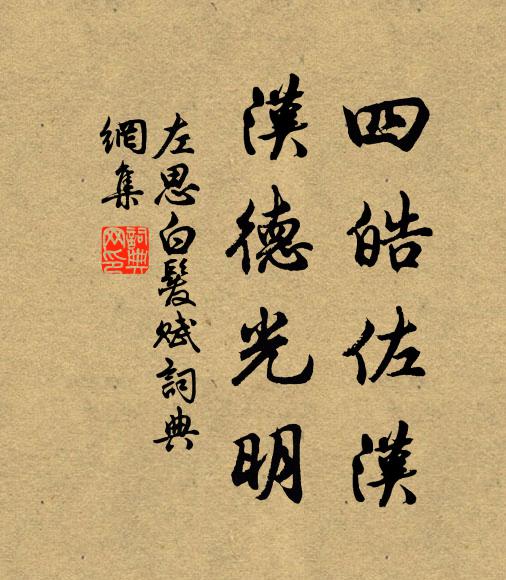 四皓佐漢
漢德光明
左思白髮賦詞典
網集
詞典
网印